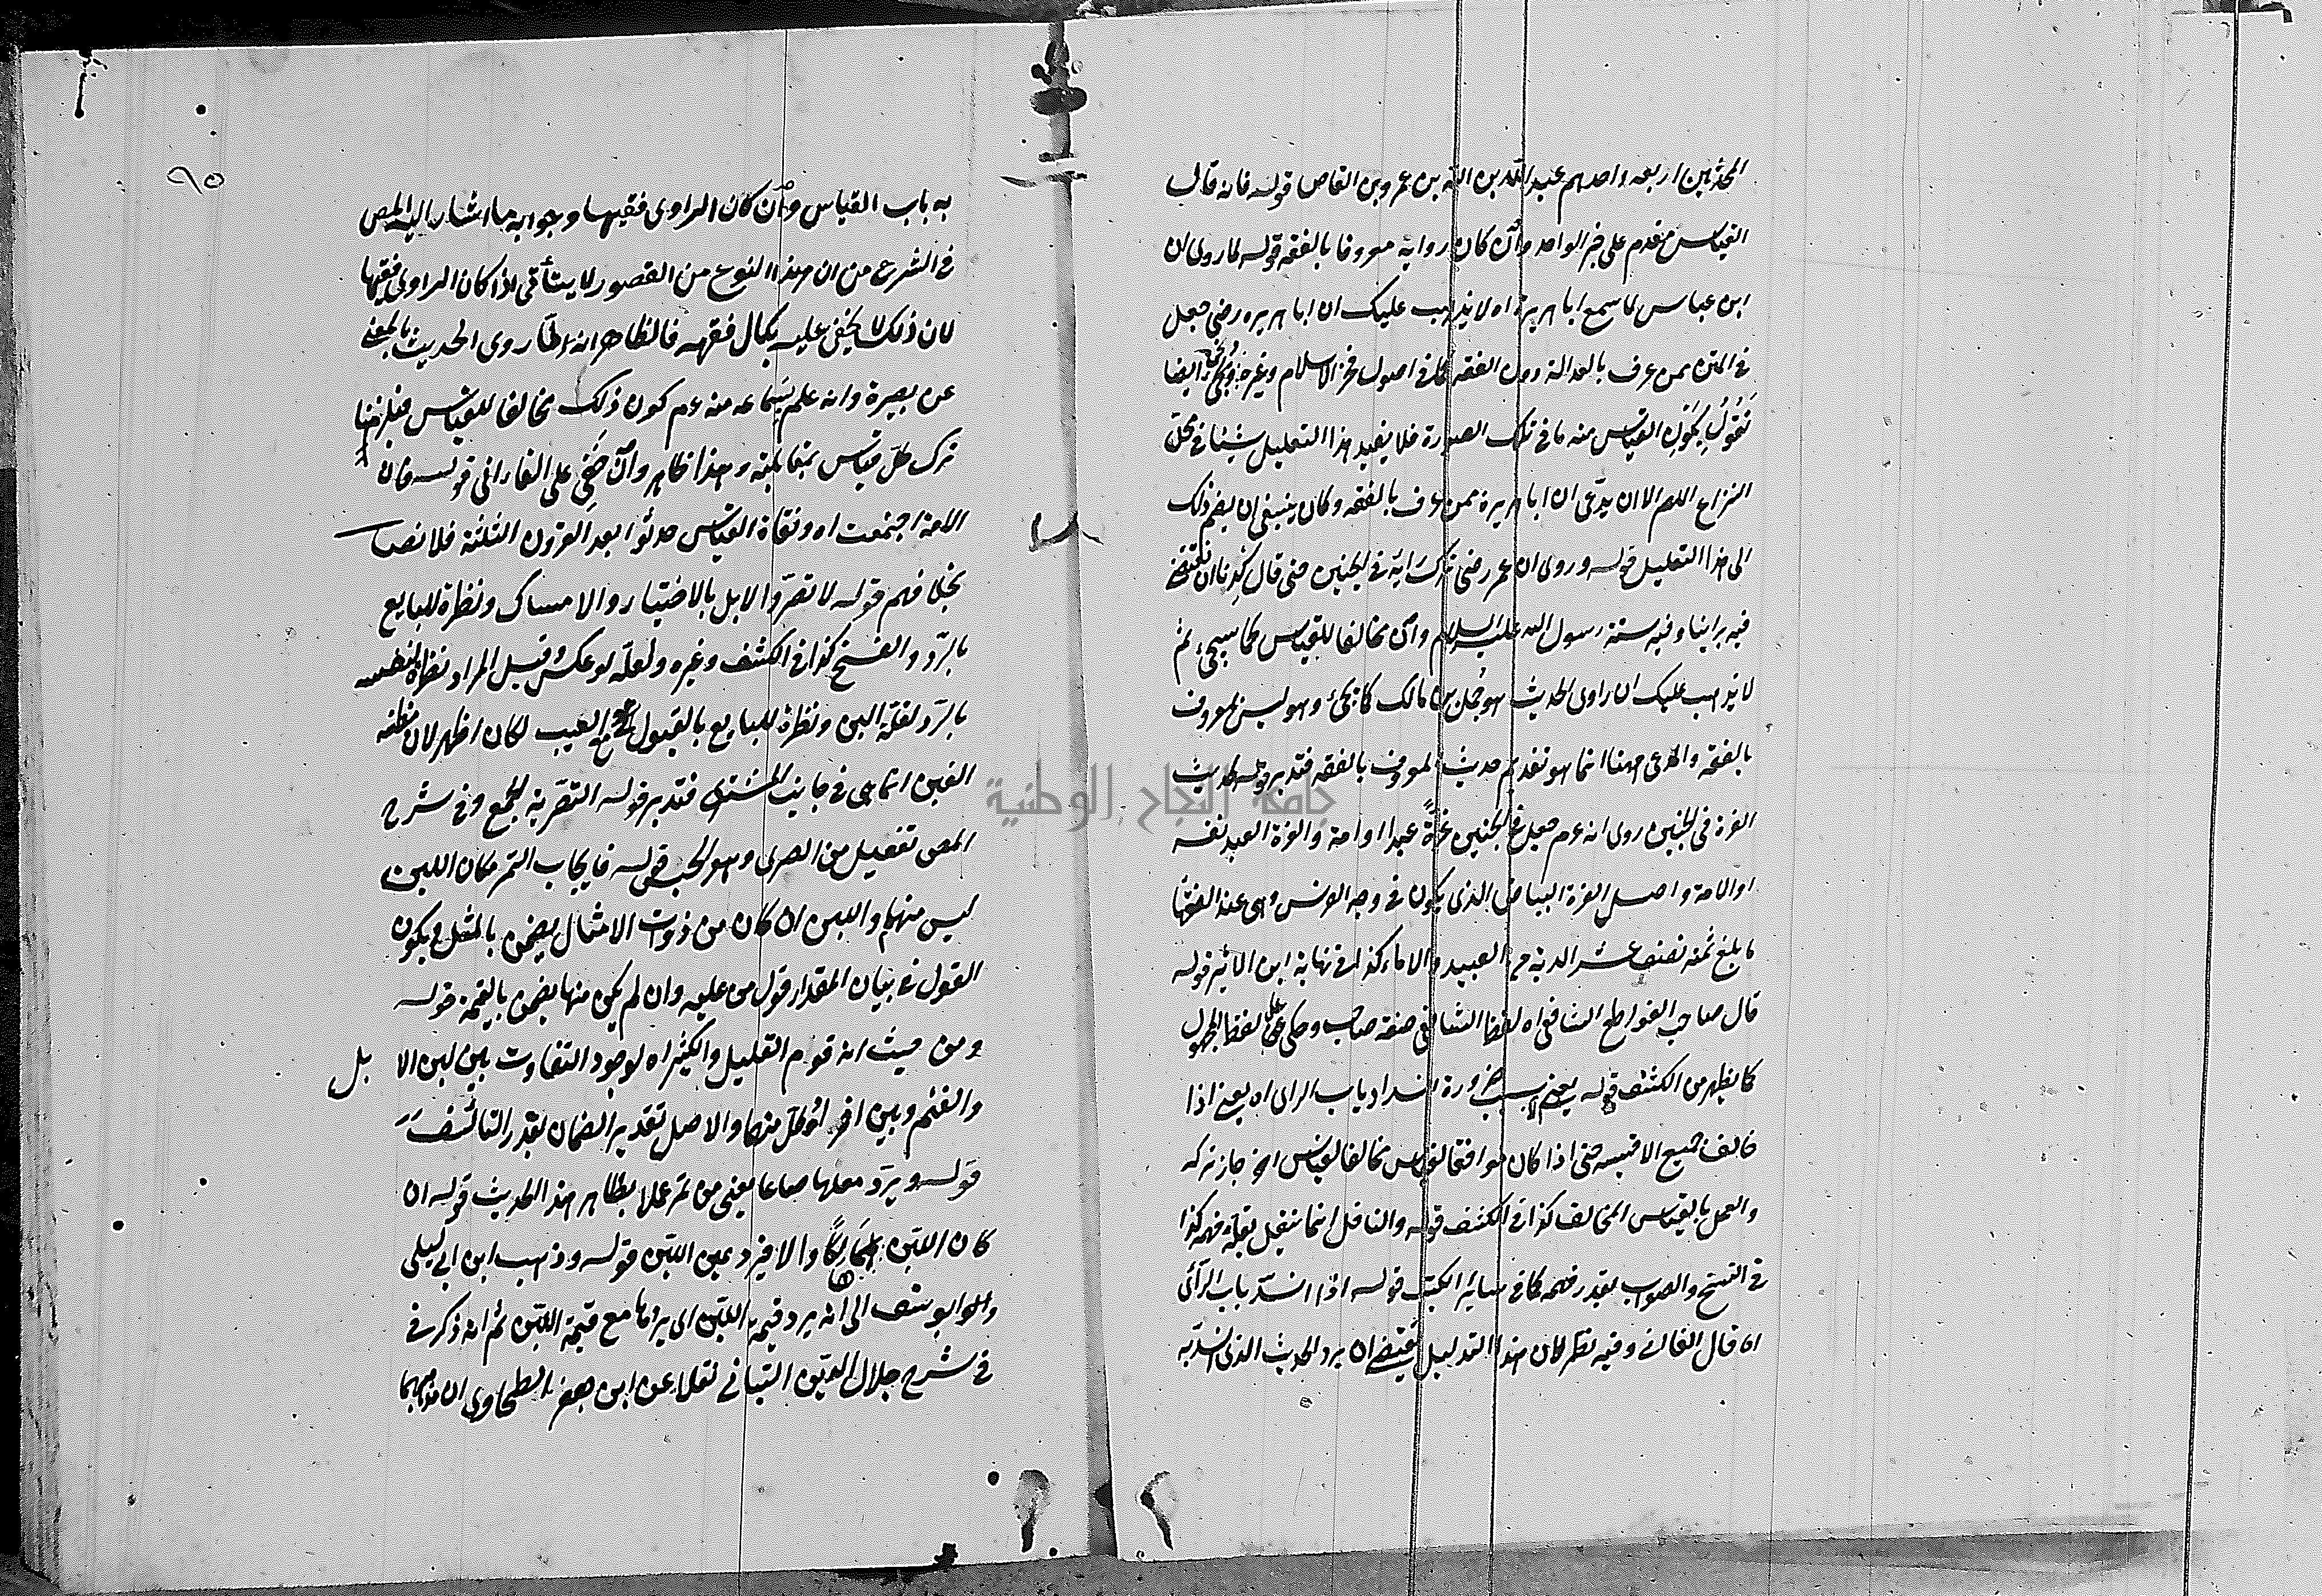 المحدثين اربعه واحدهم عبد الله بن عمرو بن العاص قوله فانه قال
القياس مقدم على خبر الواحد وان كان رواية معروفا بالفقه قوله لما روى ان
ابن عباس لما سمع ابا هريرة اه لا يذهب عليك ان ابا هريره رضى جعل
في المتن ممن عرف بالعدالة دون الفقه كما في اصول فخر الاسلام وغيره ايضا
نقول يكون القياس منه ما في تلك الصورة فلا يفيد هذا التعليل شيئا في محل
النزاع اللهم الا ان يدعى ان ابا هريرة ممن عرف بالفقه وكان ينبغي ان يضم ذلك
الى هذا التعليل قوله وروى ان عمر رضى ترك رايه في الجنين حتى قال كدنا ان نقضى
فيه براينا وفيه سنة رسول الله عليه السلام وان مخالفا للقياس كما سيجئ ثم
لا يذهب عليك ان راوى الحديث هو حمل بن مالك كما يجئ وهو ليس بمعروف
بالفقه والمدعى ههنا انما هو تقديم حديث المعروف بالفقه فتدبر قوله لحديث
الغرة في الجنين روى انه عم جعل في الجنين غرة عبدا او امة والغرة العبد نفسه
او الامة واصل الغرة البياض الذى يكون في وجه الفرس وهى عند الفقها
ما بلغ ثمنه نصف عشر الدية من العبيد والاماء كذا في نهاية ابن الاثير قوله
قال صاحب القواطع الشافعى اه لفظ الشافعى صفة صاحب وحكى على لفظ المجهول
كما يظهر من الكشف قوله يعنى بسبب ضرورة انسداد باب الراى اه يعنى اذا
خالف جميع الاقيسة حتى اذا كان موافقا لقياس مخالفا لقياس اخر جاز تركه
والعمل بالقياس المخالف كذا في الكشف قوله والناقل انما ينقل بقلة فهمه كذا
في النسخ والصواب بقدر فهمه كما في سائر الكتب قوله اذا انسد باب الرأى
اه قال الفاانى وفيه نظر لان هذا التدليل يقتضى ان يرد الحديث الذى انسد به
٩٥
به باب القياس وان كان الراوى فقيها وجوابه ما اشار اليه المص
في الشرح من ان هذا النوع من القصور لا يتأتى اذا كان الراوى فقيها
لان ذلك لا يخفى عليه بكمال فقهه فالظاهر انه انما روى الحديث بالمعنى
عن بصيرة وانه علم بسماعه منه عم كون ذلك مخالفا للقياس فيلزمنا
ترك كل قياس بمقابلته وهذا ظاهر وان خفى على الفاانى قوله فان
الامة اجتمعت اه ونفاة القياس حدثوا بعد القرون الثلثة فلا نصاب
بخلافهم قوله لا تصروا الابل بالاختيار والامساك ونظرة للبايع
بالرد والفسخ كذا في الكشف وغيره ولعله لو عكس وقيل المراد نظرة لنفسه
بالرد لقلة اللبن ونظرة للبايع بالقبول مع العيب لكان اظهر لان مظنة
الغبن انما هى في جانب المشترى فتدبر قوله التصرية الجمع وفي شرح
المص تفعيل من الصرى وهو الحبس قوله فايجاب التمر مكان اللبن
ليس منهما واللبن ان كان من ذوات الامثال يضمن بالمثل ويكون
القول في بيان المقدار قول من عليه وان لم يكن منها يضمن بالقيمة قوله
ومن حيث انه قوم القليل والكثير اه لوجود التفاوت بين لبن الا بل
والغنم وبين افراد كل منهما والاصل تقدير الضمان بقدر التالف
قوله ويرد معها صاعا يعنى من تمر عملا بظاهر هذا الحديث قوله ان
كان اللبن هالكا والا فيرد عين اللبن قوله وذهب ابن ابى ليلى
وابو يوسف الى انه يرد قيمة اللبن اى يردها مع قيمة اللبن ثم انه ذكر في
في شرح جلال الدين التبانى نقلا عن ابن جعفر الطحاوى ان مذهبهما
جامعة النجاح الوطنية